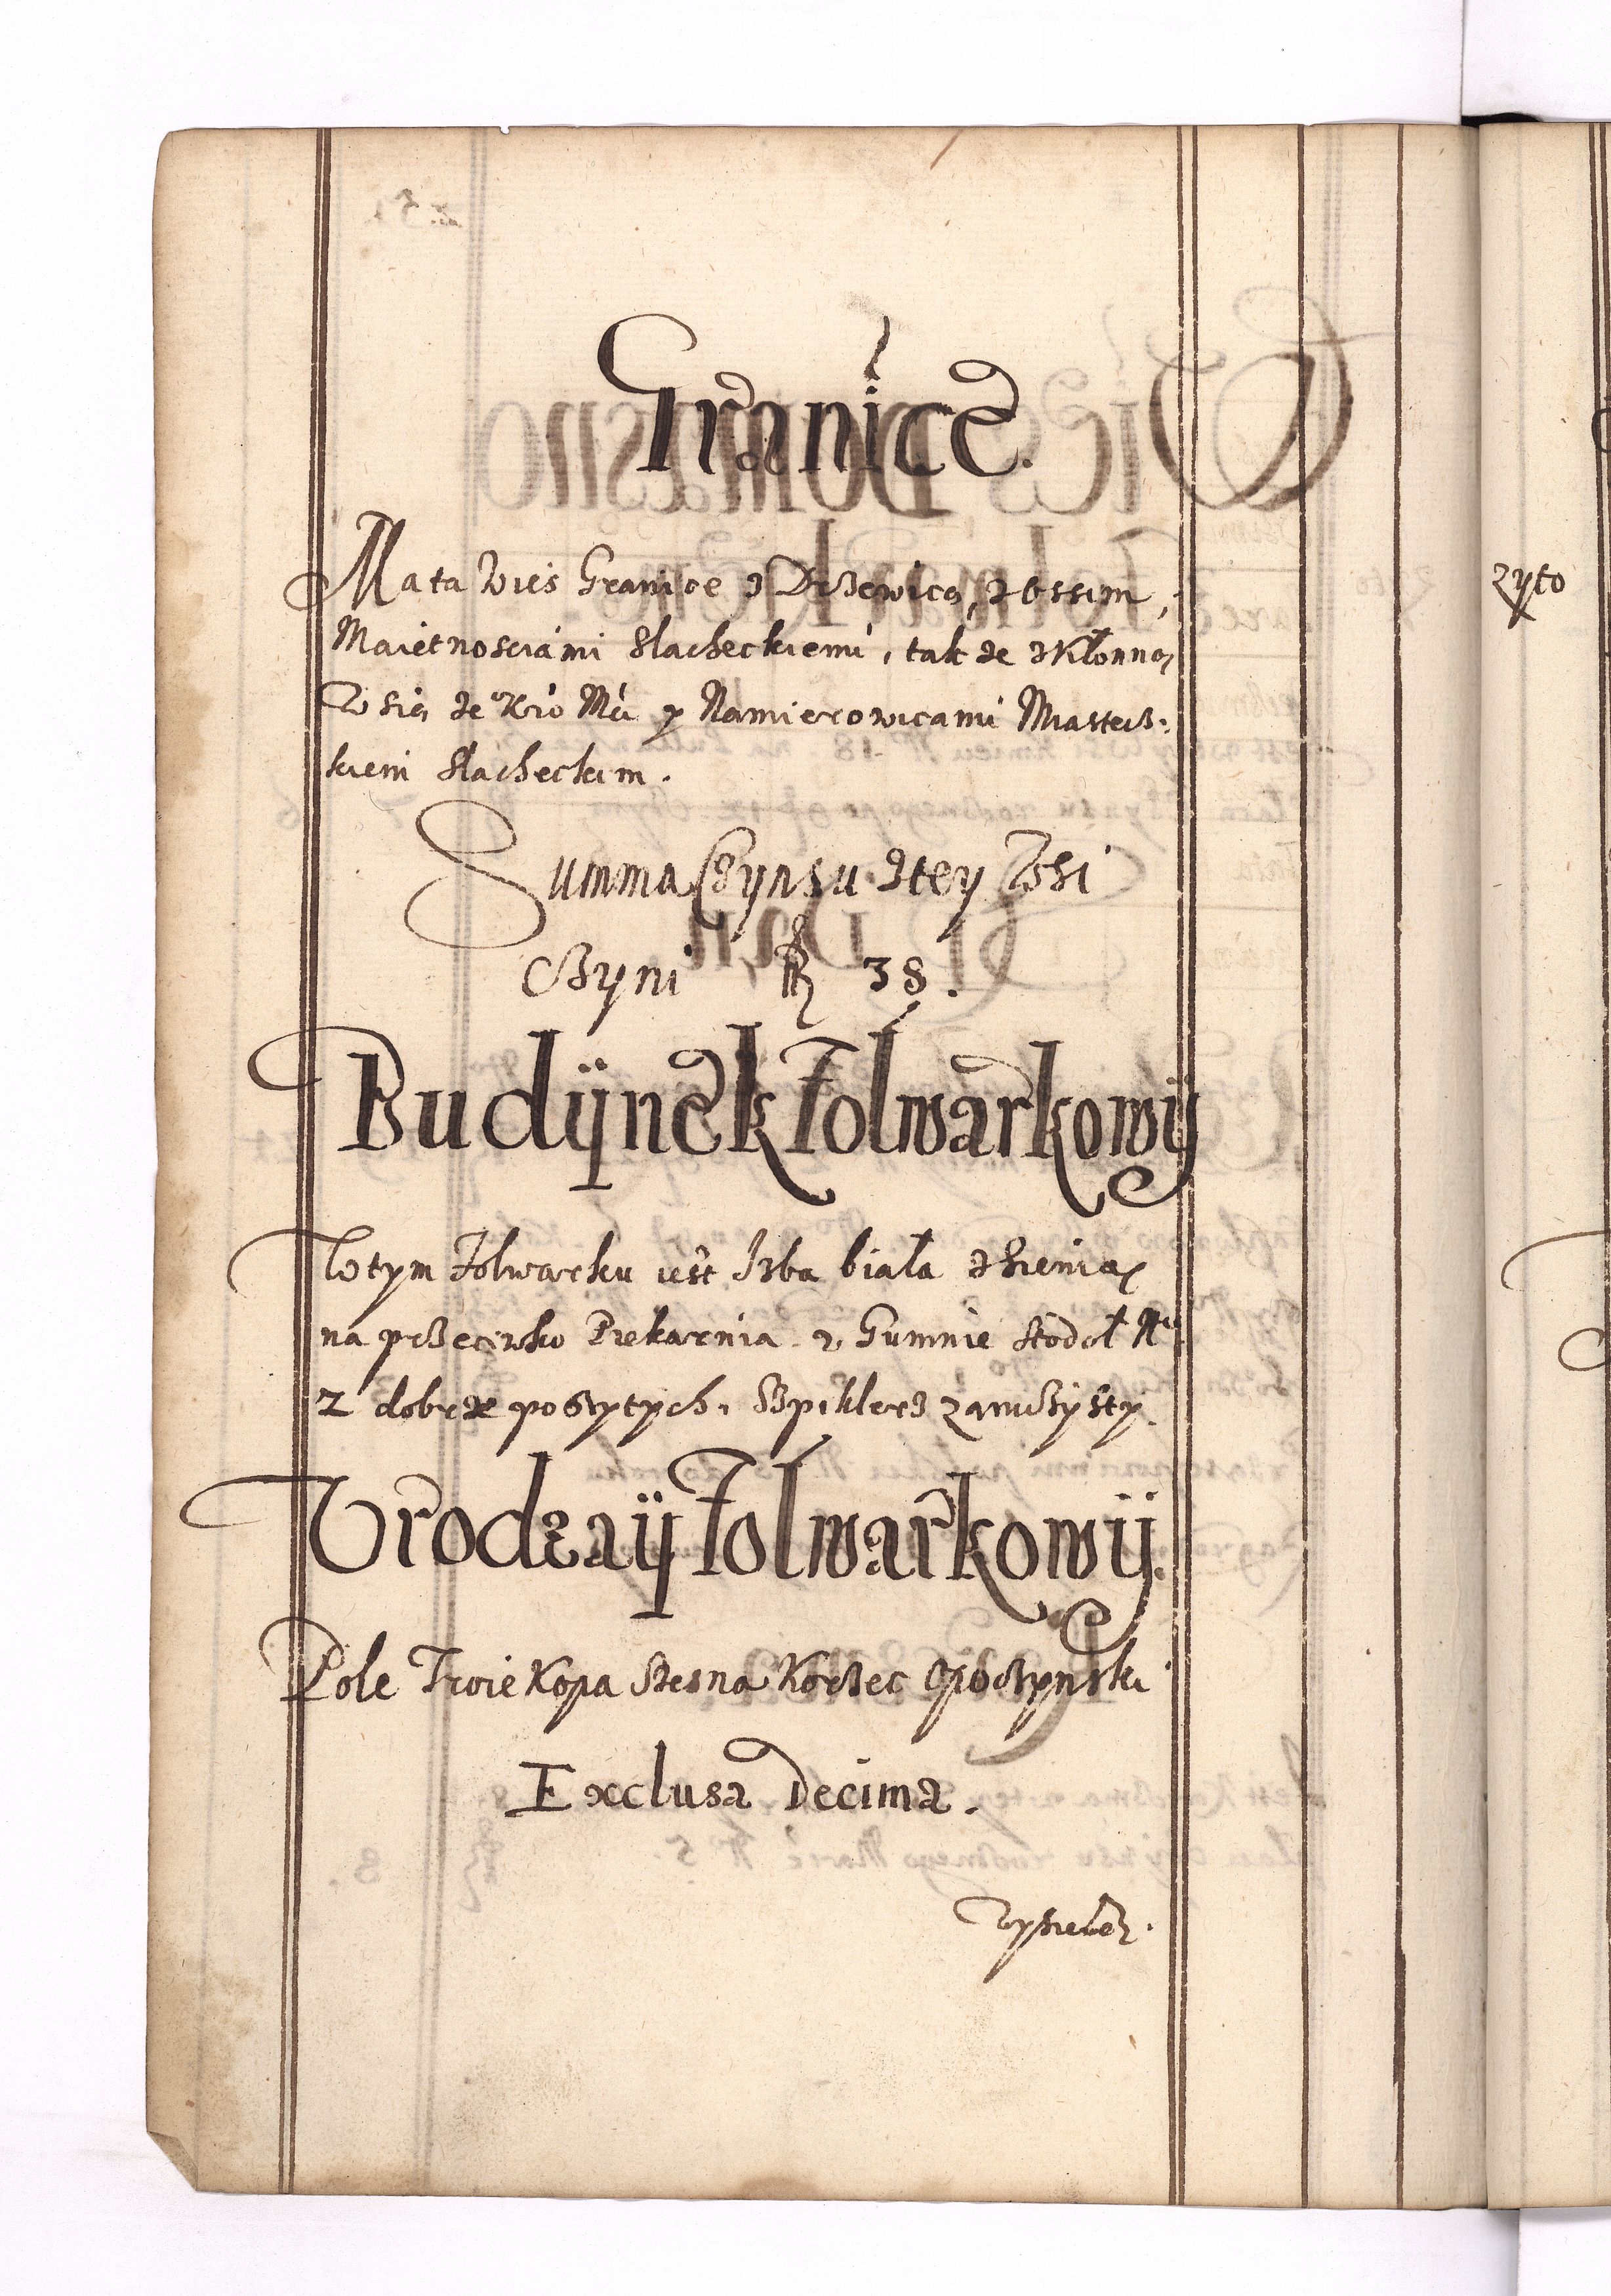 Granice.
Mata Wieś Granice z Drzewicą, z Ossem,
Maiętnosciami Slacheckiemi, tak ze z Kłonną
Wsią ze Kro Mći y Namierowicami Miastecz:
kiem Slacheckim.
Summa Czynsu z tey Wsi
Czyni 38.
Budÿnek Folwarkowÿ
W tym Folwarku iest Izba biała z Sienią
na przeciwko Piekarnia. w Gumnie Stodoł No
2 dobrze poszytych, Szpiklerz zamczysty
Vrodzaÿ Folwarkowÿ.
Pole Troie Kopa Korzec Opoczynski
Exclusa Decima.
zyto